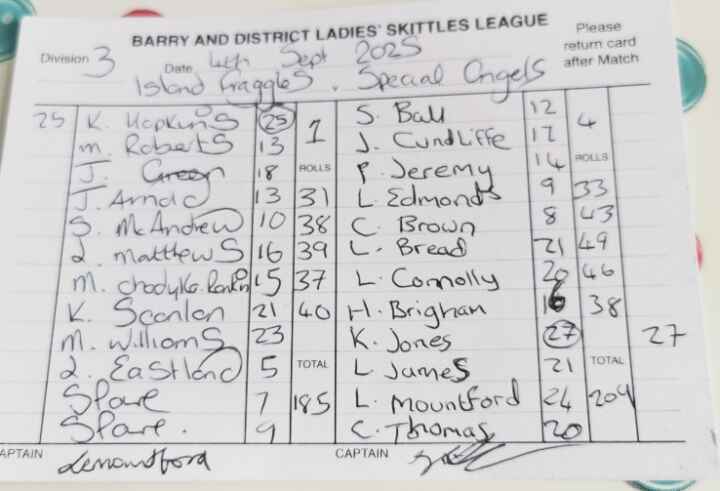 BARRY AND DISTRICT LADIES' SKITTLES LEAGUE
Please return card after Match
Division 3 Date 4th Sept 2025
Island Fraggles. Special Angels
25 K. Hopkins 25 1 S. Ball 12 4
M. Roberts 13 J. Cundliffe 12
J. Green 18 ROLLS P. Jeremy 14 ROLLS
J. Arnold 13 31 L. Edmonds 9 33
S. McAndrew 10 38 C. Brown 8 43
L. Matthews 16 39 L. Bread 21 49
M. 15 37 L. Connolly 20 46
K. Scanlon 21 40 H. Brighan 16 38
M. Williams 23 K. Jones 27 27
L. Eastland 5 TOTAL L. James 21 TOTAL
Spare 7 185 L. Mountford 24 209
Spare. 9 C. Thomas 20
CAPTAIN CAPTAIN